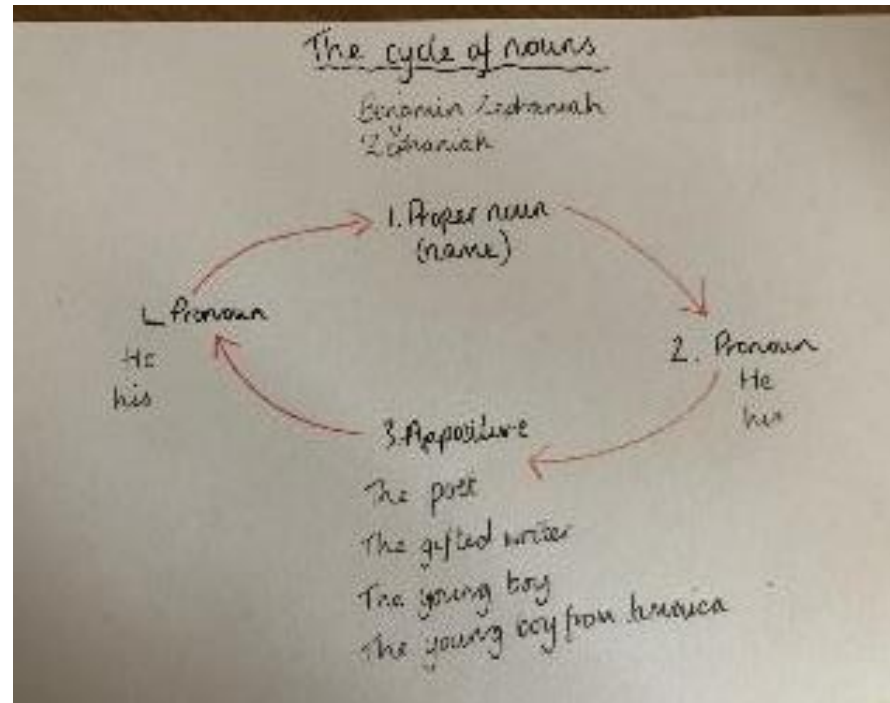 The cycle of nouns
Benjamin Zephaniah
Zephaniah
1. Proper noun
(name)
2. Pronoun
He
his
3. Appositive
The poet
The gifted writer
The young boy
The young boy from Jamaica
Pronoun
He
his